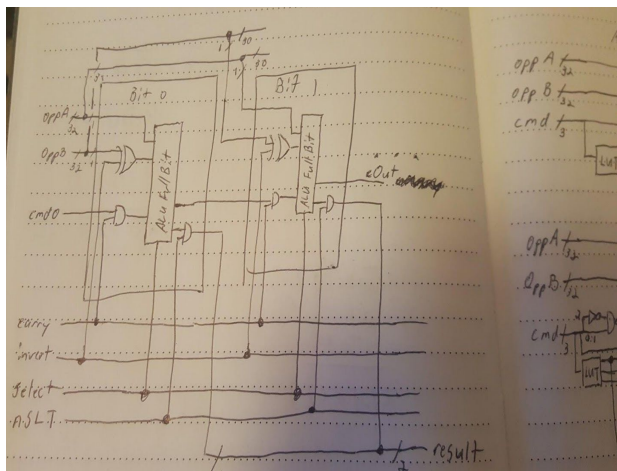 1 30
31 1 30
Bit 0
Bit 1
OppA
32 1
OppB
32 1
cmd0
ALU Full Bit
ALU Full Bit
cOut
carry
invert
select
nSLT
result
OppA
32
OppB
32
cmd
3
LUT
OppA
32
OppB
32
cmd
3
LUT